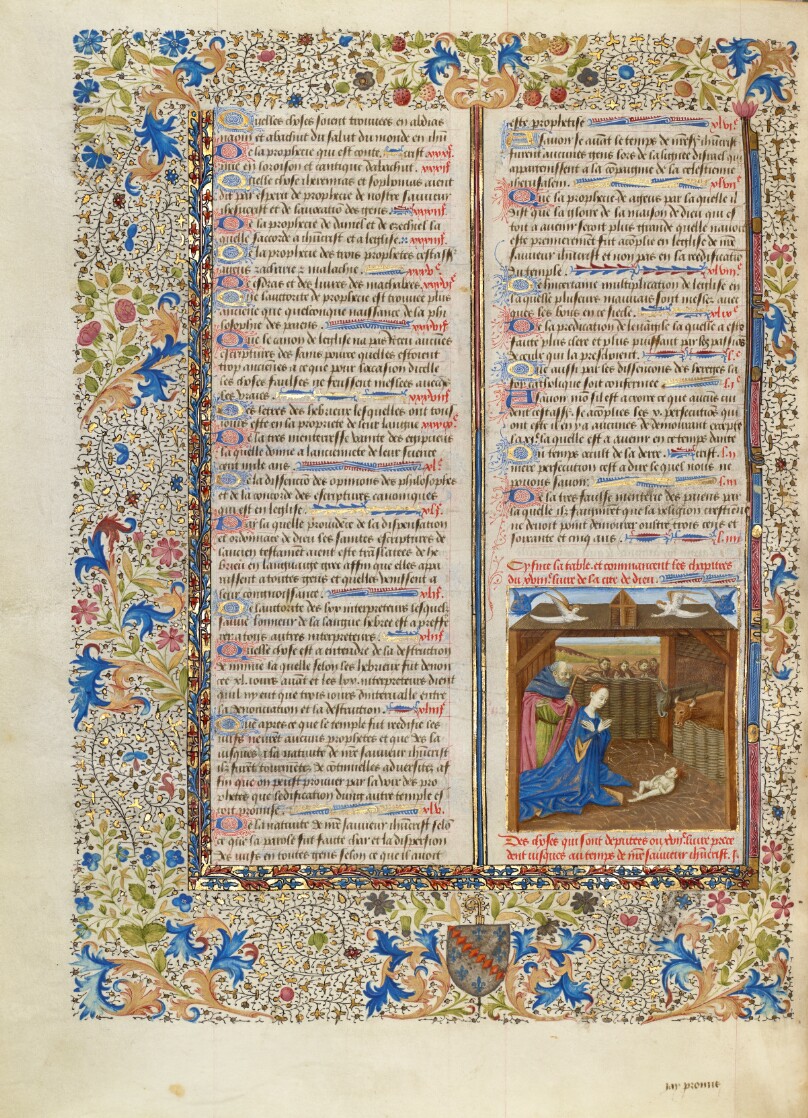 Quelles choses soient trouvees en abdias
naom et abachuc du salut du monde en ihū
De la prophecie qui est conte crist xxxi.
nue en loroison et cantique dabachuc. xxxii
Quelle chose iheremias et sophonias aient
dit par esperit de prophecie de nostre sauueur
ihesucrist et de la vocatiō des gens. xxxiii
De la prophecie de daniel et de ezechiel la
quelle saccorde a ihūcrist et a leglise. xxxiiii
De la prophecie des trois prophetes cestass
aggeus zacharie et malachie. xxxv
De esdras et des liures des machabees. xxxvi
Que lauctorite de prophecie est trouuee plus
ancienne que quelconque naissance de la phi
losophie des paiens. xxxvii
Que le canon de leglise na pas receu aucunes
escriptures des sains pource quelles estoient
trop anciennes a ce que pour loccasion dicelle
les choses faulses ne feussent meslees auecqs
les vraies. xxxviii
Des letres des hebrieux lesquelles ont tous
iours este en la propriete de leur langue xxxix
De la tres menteresse vanite des egipciens
laquelle donne a lanciennete de leur science
cent mile ans. xl.
De la dissencion des opinions des philosophes
et de la concorde des escriptures canoniques
qui est en leglise. xli.
Par laquelle prouidēce de la dispensation
et ordonnance de dieu les saintes escriptures de
lancien testament aient este translatees de he
brieu en languaige grec affin que elles appa
russent a toutes gens et quelles venissent a
leur congnoissance. xlii
De lauctorite des lxx interpreteurs lesquels
sauue lonneur de la langue hebree est a preffe
rer a tous autres interpreteurs. xliii
Quelle chose est a entendre de la destruction
de niniue la quelle selon les hebrieux fut denon
cee xl. iours auant et les lxx. interpreteurs dient
quil ny eut que trois iours dinterualle entre
la denonciation et la destruction. xliiii
Que apres ce que le temple fut redifie les
iuifs neurent aucuns prophetes et que des la
iusques a la natiuite de nre sauueur ihūcrist
ilz furēt tourmētes de cōtinuelles aduersites af
fin que on peust prouuer par la voix des pro
phetes que ledification dun autre temple est
oit promise. xlv.
De la natiuite de nre sauueur ihūcrist selō
ce que la parole fut faicte char et la dispersion
des iuifs en toutes gens selon ce quil auoit
este prophetise xlvi.
Assauoir se auāt le temps de nre sr ihūcrist
furent aucunes gens hors de la lignee disrael qui
appartenissent a la compaignie de la celestienne
iherusalem. xlvii
Que la prophecie de ageus par la quelle il
dist que la gloire de la maison de dieu qui es
toit a auenir seroit plus grande quelle nauoit
este premierement fut acōplie en leglise de nre
sauueur ihūcrist et non pas en la redificatiō
du temple. xlviii
De lincertaine multiplication de leglise en
laquelle pluseurs mauuais sont meslez auec
ques les bons en ce siecle. xlix.
De la predication de leuāgile la quelle a este
faicte plus clere et plus puissant par les passiōs
de ceulx qui la preschoient. l.
Que aussi par les dissencions des hereges la
foy catholique soit confermee. li
Assauoir mō sil est a croire ce que aucuns cui
dent cestass. se acōplies les x. persecutiōs qui
ont este il en y a aucunes de demourant excepte
la xi. laquelle est a auenir en ce temps dante
Du temps occult de la derre crist. lii
niere persecution cest a dire lequel nous ne
pouons sauoir. liii
De la tres faulse menterie des paiens par
la quelle ilz faignirent que la religion crestienne
ne deuoit point demourer oultre trois cens et
soixante et cinq ans. liiii
Cy fine la table. et commancent les chapitres
du xviiie. liure de la cite de dieu.
Des choses qui sont deputees ou xviie. liure prece
dent iusques au temps de nre sauueur ihūcrist. i.
iay promis